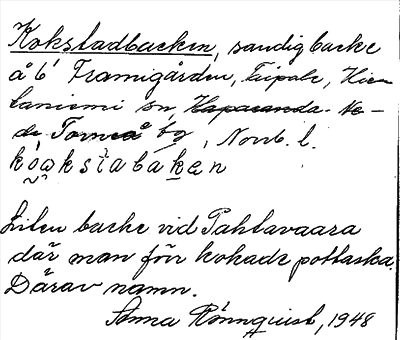 Koksladbacken, sandig backe
å 6' Framigården, Taipale, Hie-
taniemi sn, Haparanda- Ne-
de Torneå bg, Norrb. l.

Liten backe vid Pahtavaara
där man förr kokade pottaska.
Därav namn.
Anna Rönnquist, 1948